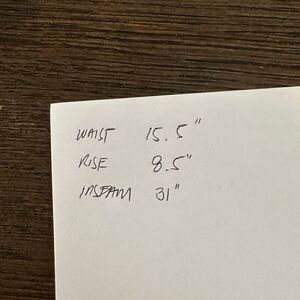 WAIST 15.5"
RISE 8.5"
INSEAM 31"